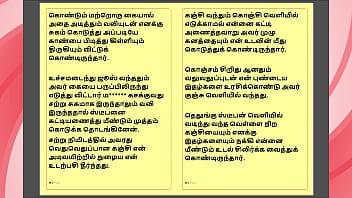 கொண்டும் மற்றொரு கையால்
அதை அடித்தும் வலியுடன் எனக்கு
சுகம் கொடுத்து அப்படியே
காண்பை பிடித்து கிள்ளியும்
திருகியும் விட்டுக்
கொண்டிருந்தார்.
உச்சமடைந்து ஜூஸ் வந்ததும்
அவர் கையை பருப்பிலிருந்து
எடுத்து விட்டார் ம****** சுகக்குவது
சற்று சுகமாக இருந்தாலும் வலி
இருந்ததால் ஸ்டீபனை
கட்டியணைத்து மீண்டும் முத்தம்
கொடுக்க தொடங்கினேன்.
சற்று நிமிடத்தில் அவரது
வெதுவெதுப்பான கஞ்சி என்
அடிவயிற்றில் நுழைய என்
உடற்பசி தீர்ந்தது.
கஞ்சி வந்தும் கொஞ்ச் வெளியில்
எடுக்காமல் என்னை கட்டி
அணைத்தவாறு அவர் முழு
கனத்தையும் என் உடலின் மீது
கொடுத்துக் கொண்டிருந்தார்.
கொஞ்சம் சிறிது ஆனதும்
வழுவழுப்புடன் என் புண்டைய
இதழ்களை உரசிக்கொண்டு அவர்
குஞ்சு வெளியில் வந்தது.
தெதுங்கு ஸ்டீபன் வெளியில்
வடிந்து வந்த வெள்ளை நிற
கஞ்சியையும் எனக்கு
இதழ்களையும் நக்கி என்னை
மீண்டும் உடல் சிலிர்க்க வைத்துக்
கொண்டிருந்தார்.